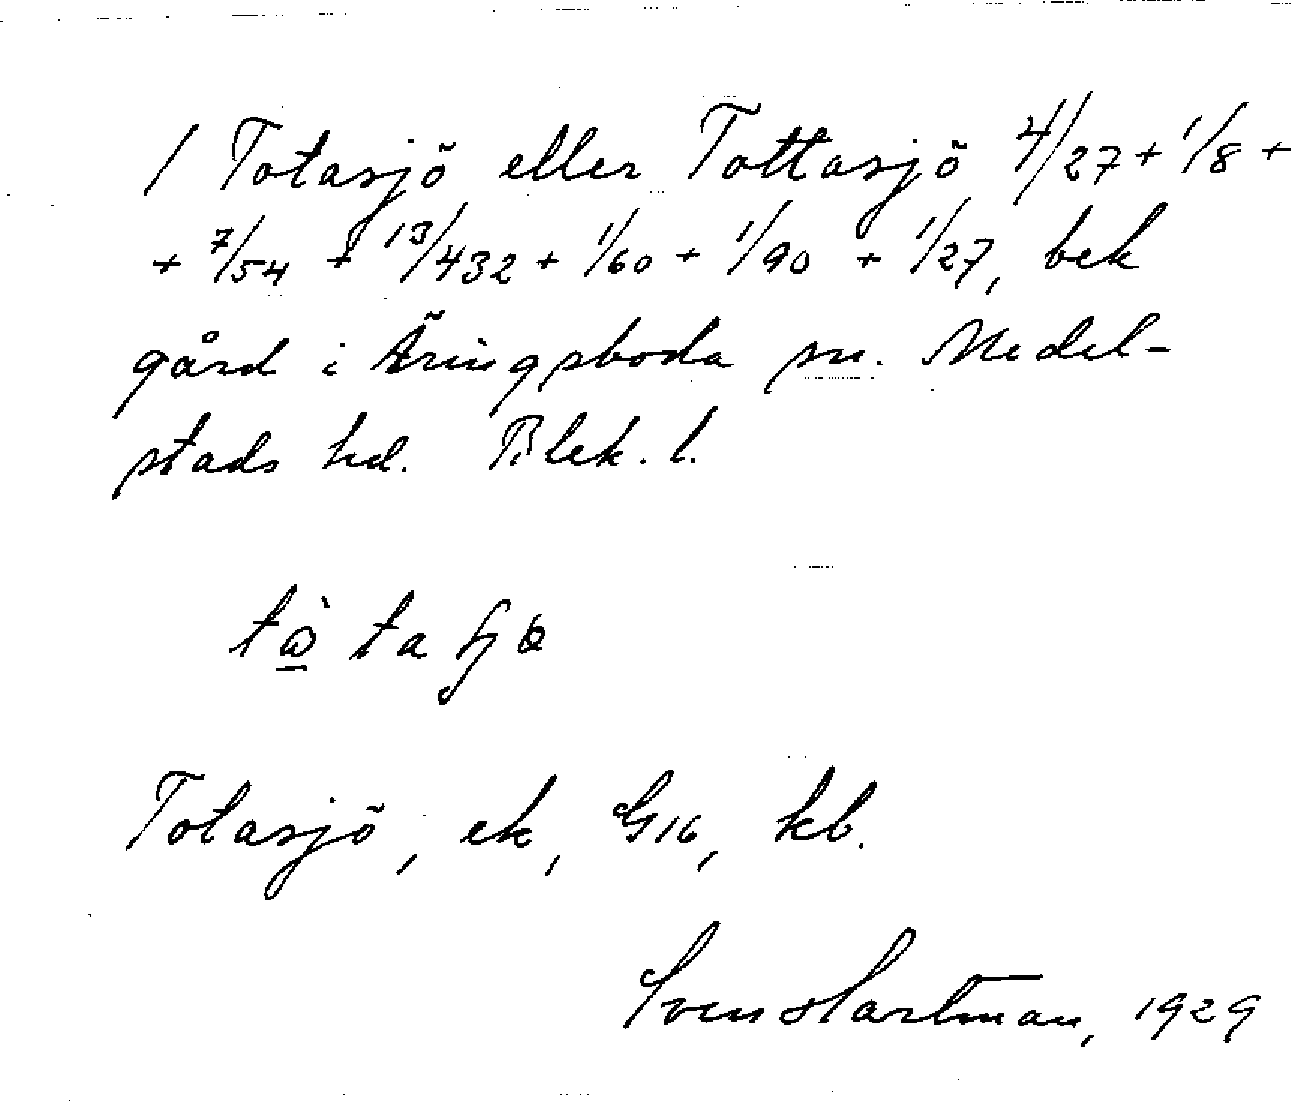 1 Totasjö eller Tottasjö 4/27 + 1/8 +
+ 7/54 + 13/432 + 1/60 + 1/90 + 1/27, bek
gård i Äringsboda sn. Medel-
stads hd. Blek. l.
Totasjö, ek, G16, kb.
Sven Hartman, 1929